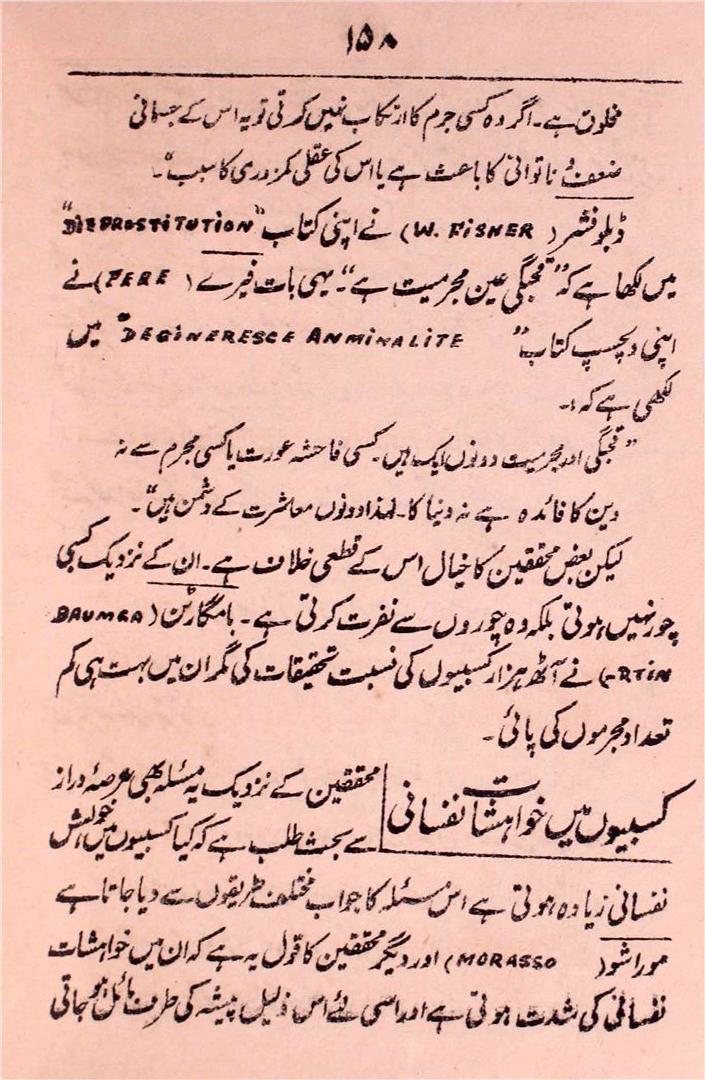 ۱۵۸
مخلوق ہے۔ اگر وہ کسی جرم کا ارتکاب نہیں کرتی تو یہ اس کے جسمانی
ضعف و ناتوانی کا باعث ہے یا اس کی عقلی کمزوری کا سبب"۔
ڈبلو فشر (W. FISHER) نے اپنی کتاب "DIE PROSTITUTION"
میں لکھا ہے کہ "قحبگی عین مجرمیت ہے"۔ یہی بات فیرے (FERE) نے
اپنی دلچسپ کتاب "DEGINERESCE ANMINALITE" میں
لکھی ہے کہ :۔
"قحبگی اور مجرمیت دونوں ایک ہیں۔ کسی فاحشہ عورت یا کسی مجرم سے نہ
دین کا فائدہ ہے نہ دنیا کا۔ لہذا دونوں معاشرت کے دشمن ہیں"۔
لیکن بعض محققین کا خیال اس کے قطعی خلاف ہے۔ ان کے نزدیک کسبی
چور نہیں ہوتی بلکہ وہ چوروں سے نفرت کرتی ہے۔ بامگارٹن (BAUMGA
RTIN-) نے آٹھ ہزار کسبیوں کی نسبت تحقیقات کی مگر ان میں بہت ہی کم
تعداد مجرموں کی پائی۔
کسبیوں میں خواہشات نفسانی
محققین کے نزدیک یہ مسئلہ بھی عرصۂ دراز
سے بحث طلب ہے کہ کیا کسبیوں میں خواہش
نفسانی زیادہ ہوتی ہے اس مسئلہ کا جواب مختلف طریقوں سے دیا جاتا ہے
موراشو (MORASSO) اور دیگر محققین کا قول یہ ہے کہ ان میں خواہشات
نفسانی کی شدت ہوتی ہے اور اسی لئے اس ذلیل پیشہ کی طرف مائل ہو جاتی